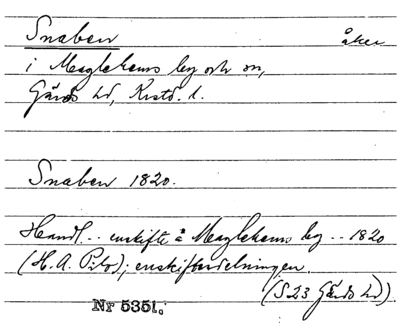 Snaben åker
i Maglehems by och sn,
Gärds hd, Krstd. l.
Snaben 1820.
Handl... enskifte å Maglehems by .. 1820
(H. A. ); enskiftesdelningen.
(S23 Gärds hd)
Nr 5351.